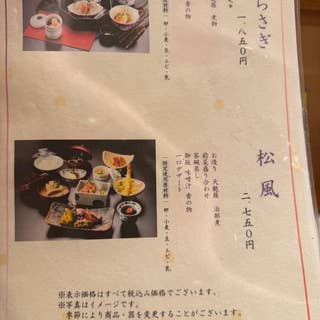 らさぎ
一、八五〇円
煮物
香の物
（特定使用原材料）卵・小麦・豆・エビ・乳
松風
二、七五〇円
お造り 天麩羅 治部煮
前菜盛り合わせ
茶碗蒸し
御飯 味噌汁 香の物
一口デザート
（特定使用原材料）卵・小麦・豆・エビ・乳
※表示価格はすべて税込み価格でございます。
※写真はイメージです。
季節により商品・器を変更することがございます。